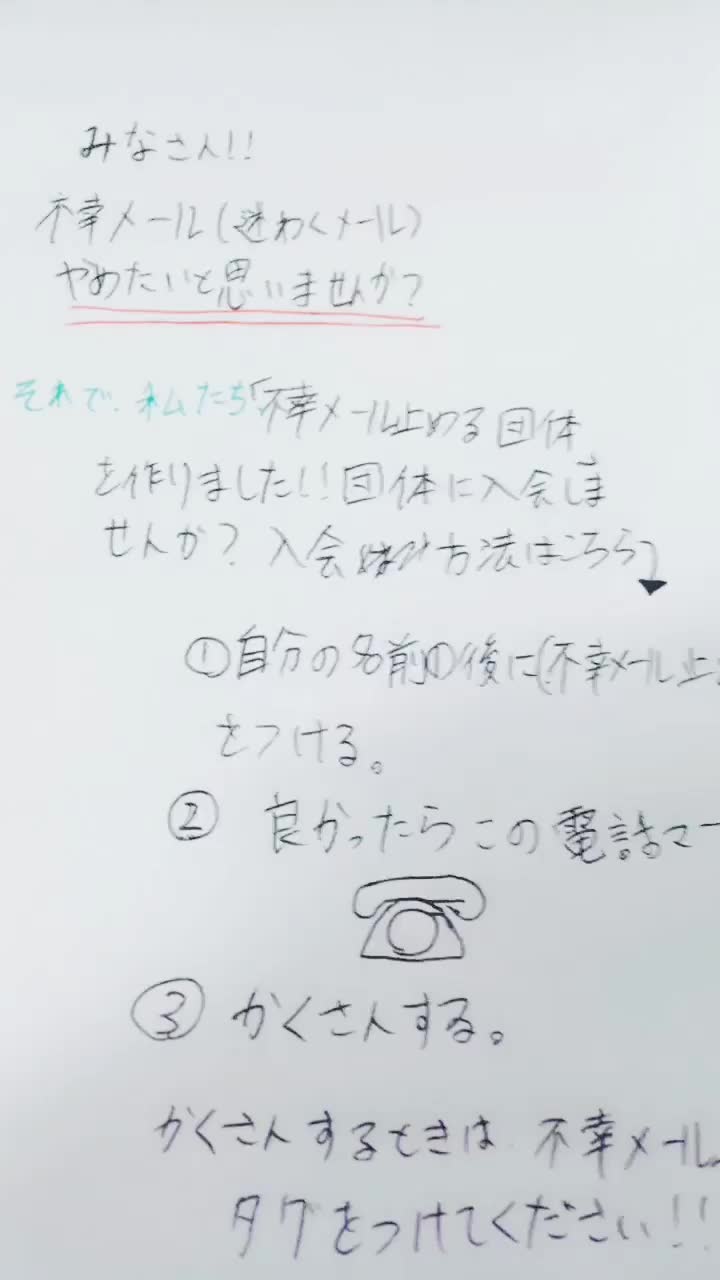 みなさん!!
不幸メール(迷わくメール)
やめたいと思いませんか?
それで、私たち「不幸メール止める団体
を作りました!!団体に入会しま
せんか?入会 方法はこちら
①自分の名前の後に(不幸メール止
をつける。
② 良かったらこの電話マー
③ かくさんする。
かくさんするときは 不幸メール
タグをつけてください!!